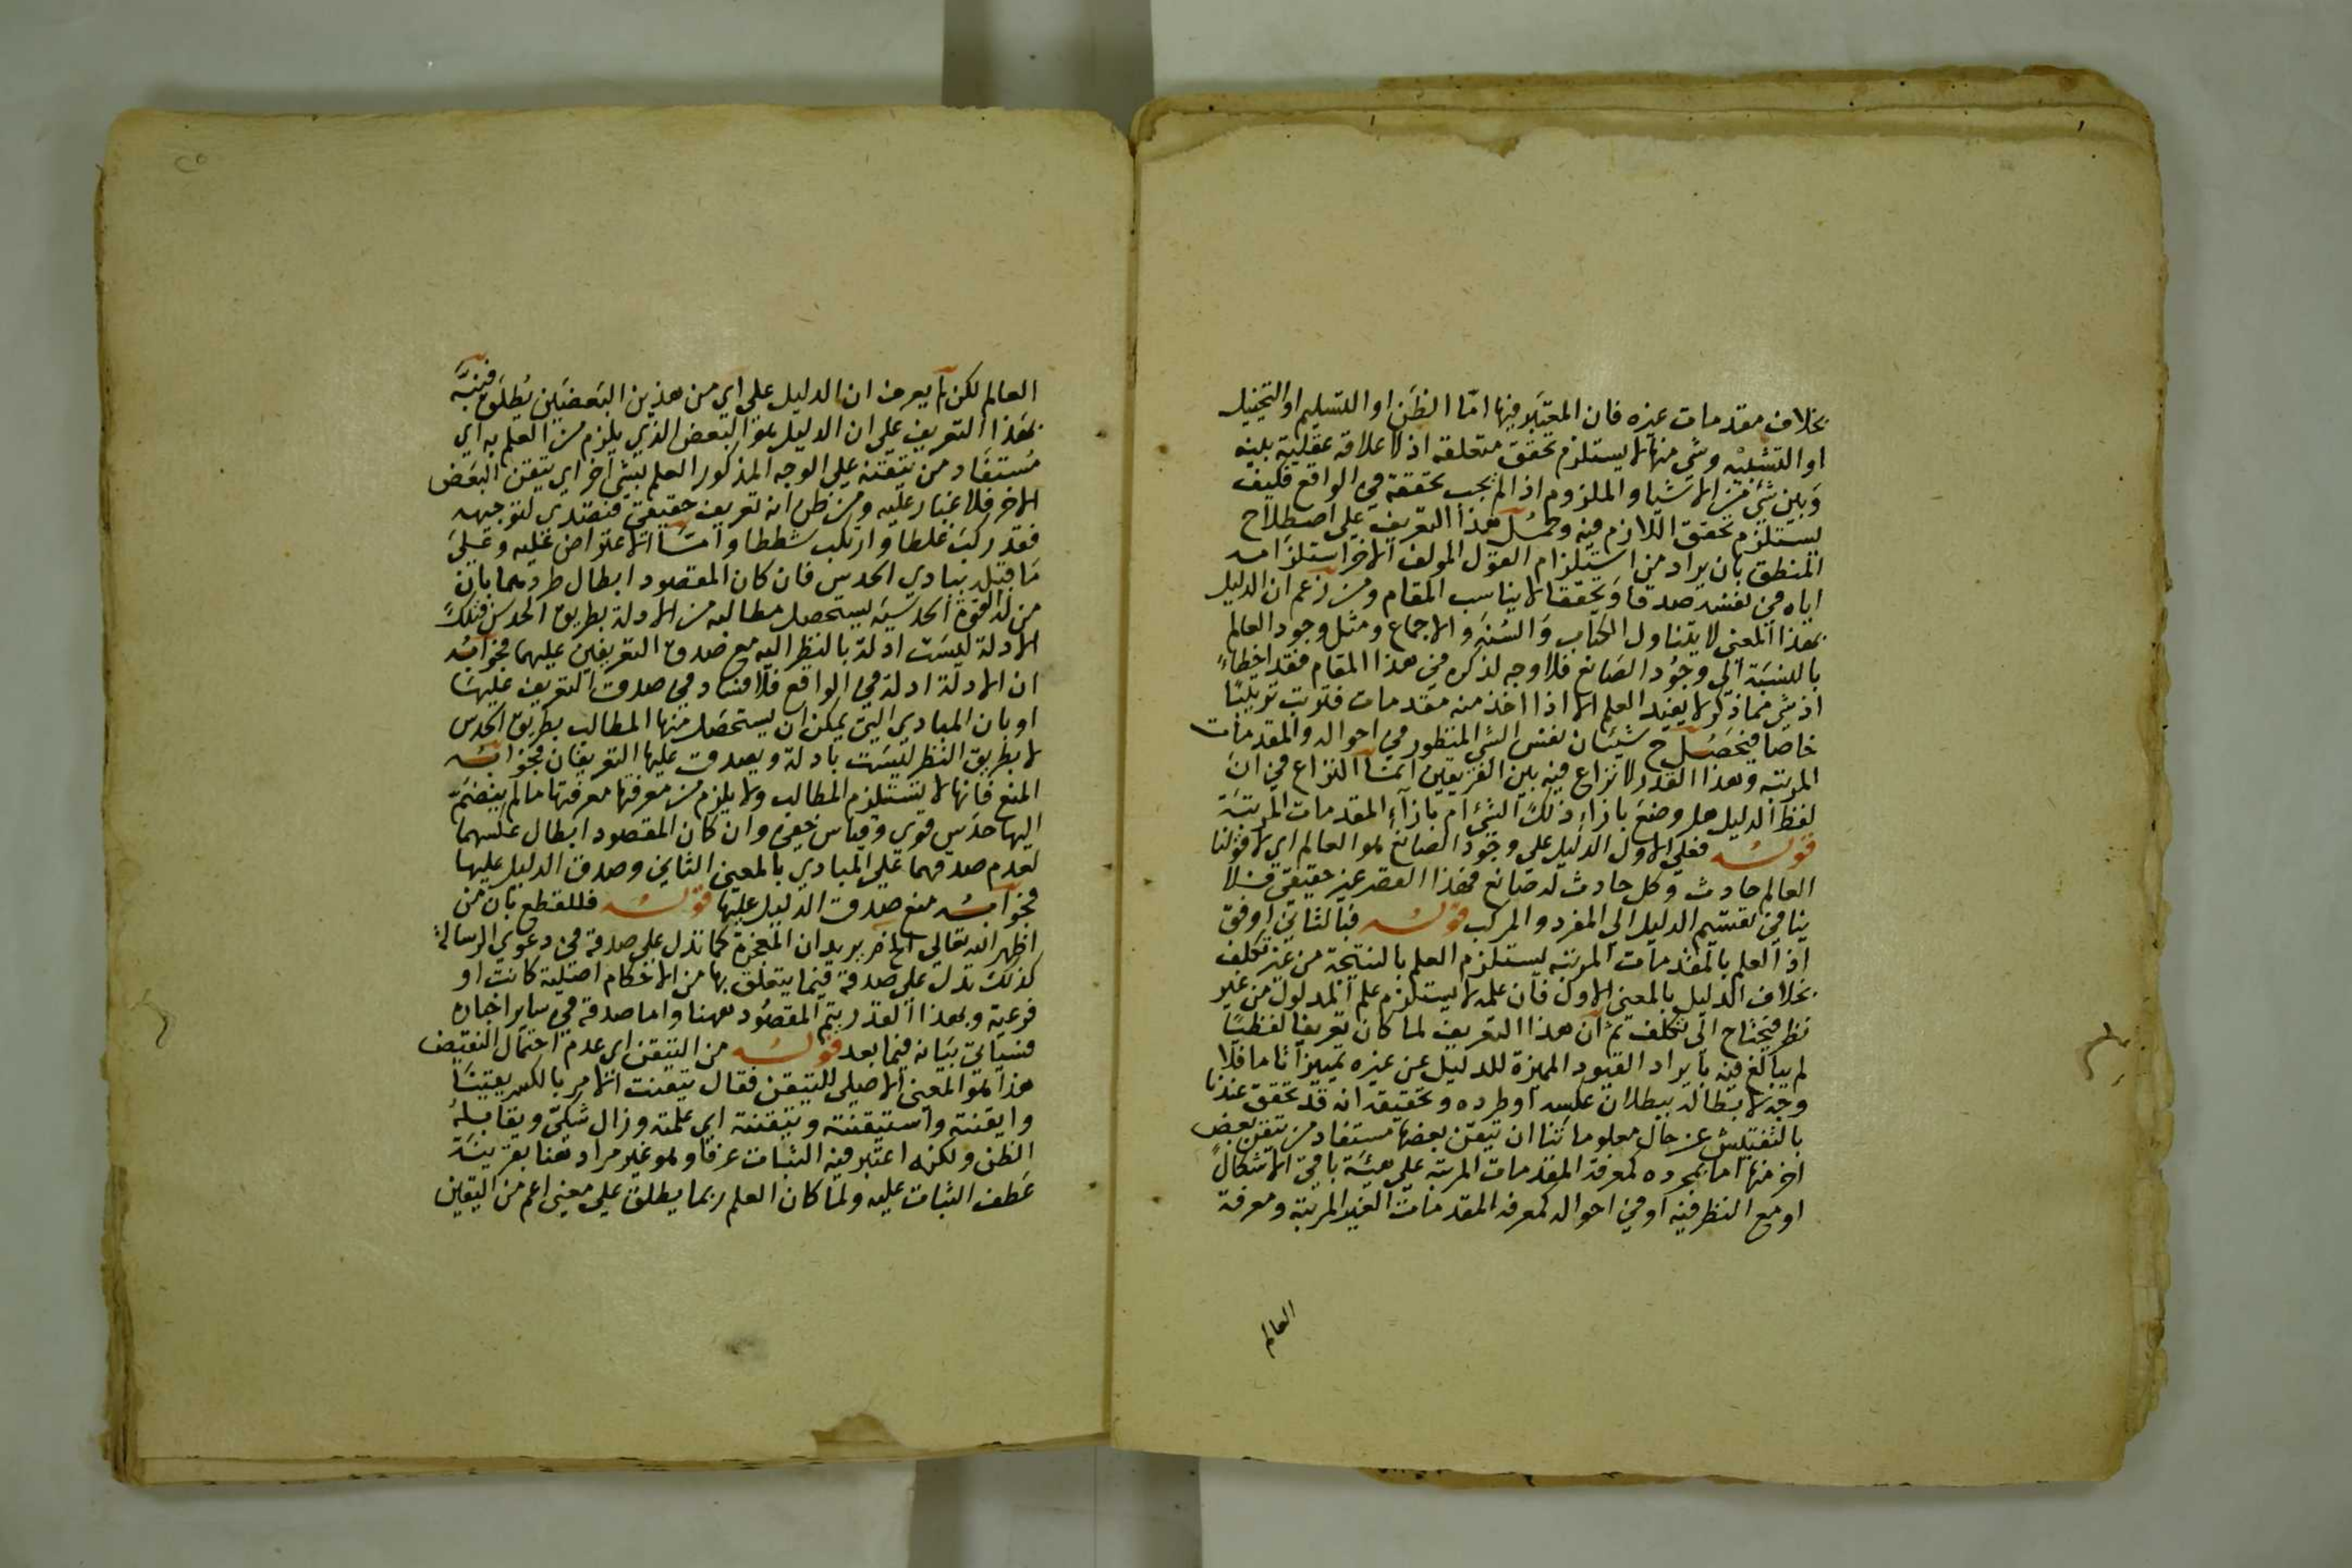 بخلاف مقدمات غيره فان المعتبر فيها امّا الظن او التسليم او التخييل
او التشبيه وشئ منها لا يستلزم تحقق متعلقه اذ لا علاقة عقلية بينه
وبين شئ من الاشيا والملزوم اذا لم يجب تحققه في الواقع فكيف
يستلزم تحقق اللازم فيه وحمل هذا التعريف على اصطلاح
المنطق بان يراد من استلزام القول المولف الاخر استلزامه
اياه في نفسه صدقا وتحققا لا يناسب المقام ومن زعم ان الدليل
بهذا المعنى لا يتناول الكتاب والسنة والاجماع ومثل وجود العالم
بالنسبة الى وجود الصانع فلا وجه لذكره في هذا المقام فقد اخطا
اذ شئ مما ذكر لا يفيد العلم الا اذا اخذ منه مقدمات فترتب ترتيبًا
خاصا فيحصل ح شيئان نفس الشئ المنظور في احواله والمقدمات
المرتبة وهذا القدر لا نزاع فيه بين الفريقين انما النزاع في ان
لفظ الدليل هل وضع بازاء ذلك الشئ ام بازاء المقدمات المرتبة
قوله فعلى الاول الدليل على وجود الصانع هو العالم اي لا قولنا
العالم حادث وكل حادث له صانع فهذا القصر غير حقيقي فلا
ينافي تقسيم الدليل الى المفرد والمركب قوله فبالثاني اوفق
اذ العلم بالمقدمات المرتبة يستلزم العلم بالنتيجة من غير تكلف
بخلاف الدليل بالمعنى الاول فان علمه لا يستلزم علم المدلول من غير
نظر فيحتاج الى تكلف ثم ان هذا التعريف لما كان تعريفا لفظيًا
لم يبالغ فيه بايراد القيود المميزة للدليل عن غيره تمييزا تاما فلا
وجه لابطاله ببطلان عكسه او طرده وتحقيقه انه قد تحقق عندنا
بالتفتيش عن حال معلوماتنا ان تيقن بعضها مستفاد من تيقن بعض
اخر منها اما بمجرده كمعرفة المقدمات المرتبة على هيئة باقي الاشكال
او مع النظر فيه او في احواله كمعرفة المقدمات الغير المرتبة ومعرفة
العالم
٢٥
العالم لكن لم يعرف ان الدليل على اي من هذين البعضين يطلق فنبه
بهذا التعريف على ان الدليل هو البعض الذي يلزم من العلم به اي
مستفاد من تيقنه على الوجه المذكور العلم بشئ اخر اي تيقن البعض
الاخر فلا غبار عليه ومن ظن انه تعريف حقيقي فتصدي لتوجيهه
فقد ركب غلطا وارتكب شططا وامّا الاعتراض عليه وعلى
ما قبله بمبادي الحدس فان كان المقصود ابطال طردهما بان
من له القوة الحدسية يستحصل مطالبه من الادلة بطريق الحدس فتلك
الادلة ليست ادلة بالنظر اليه مع صدق التعريفين عليهما فجوابه
ان الادلة ادلة في الواقع فلا فساد في صدق التعريف عليها
او بان المبادي التي يمكن ان يستحصل منها المطالب بطريق الحدس
لا بطريق النظر ليست بادلة ويصدق عليها التعريفان فجوابه
المنع فانها لا تستلزم المطالب ولا يلزم من معرفتها معرفتها ما لم ينضم
اليها حدس قوي وقياس خفي وان كان المقصود ابطال عكسهما
لعدم صدقهما على المبادي بالمعنى الثاني وصدق الدليل عليها
فجوابه منع صدق الدليل عليها قوله فللقطع بان من
اظهر الله تعالى الخ يريد ان المعجزة كما تدل على صدقه في دعوي الرسالة
كذلك تدل على صدقه فيما يتعلق بها من الاحكام اصلية كانت او
فرعية وبهذا القدر يتم المقصود ههنا واما صدقه في ساير اخباره
فسياتي بيانه فيما بعد قوله من التيقن اي عدم احتمال النقيض
هذا هو المعنى الاصلي للتيقن فقال تيقنت الامر بالكسر يقينا
وايقنته واستيقنته وتيقنته اي علمته وزال شكي ويقابله
الظن ولكنه اعتبر فيه الثبات عرفا وهو غير مراد هنا بقرينة
عطف الثبات عليه ولما كان العلم ربما يطلق على معنى اعم من اليقين